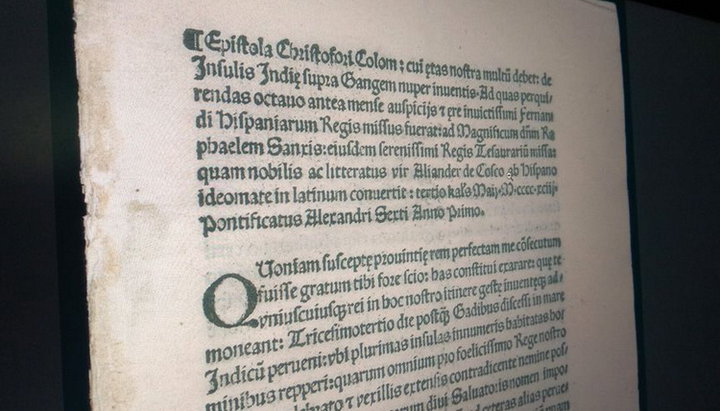 ¶ Epistola Christofori Colom: cui ętas nostra multū debet: de
Insulis Indię supra Gangem nuper inuentis. Ad quas perqui-
rendas octauo antea mense auspicijs ⁊ ęre inuictissimi Fernan
di Hispaniarum Regis missus fuerat: ad Magnificum dñm Ra
phaelem Sanxis: eiusdem serenissimi Regis Tesaurariū missa:
quam nobilis ac litteratus vir Aliander de Cosco ab Hispano
ideomate in latinum conuertit: tertio kaƚs Maij. M.cccc.xciij.
Pontificatus Alexandri Sexti Anno Primo.
Quoniam susceptę prouintię rem perfectam me cōsecutum
fuisse gratum tibi fore scio: has constitui exarare: quę te
vniuscuiusqȝ rei in hoc nostro itinere gestę inuentęqȝ ad-
moneant: Tricesimotertio die postqȝ Gadibus discessi in mare
Indicū perueni: vbi plurimas insulas innumeris habitatas hor
minibus repperi: quarum omnium pro foelicissimo Rege nostro
⁊ vexillis extensis contradicente nemine pos-
diui Saluatoris nomen impo
ad cęteras alias peruen